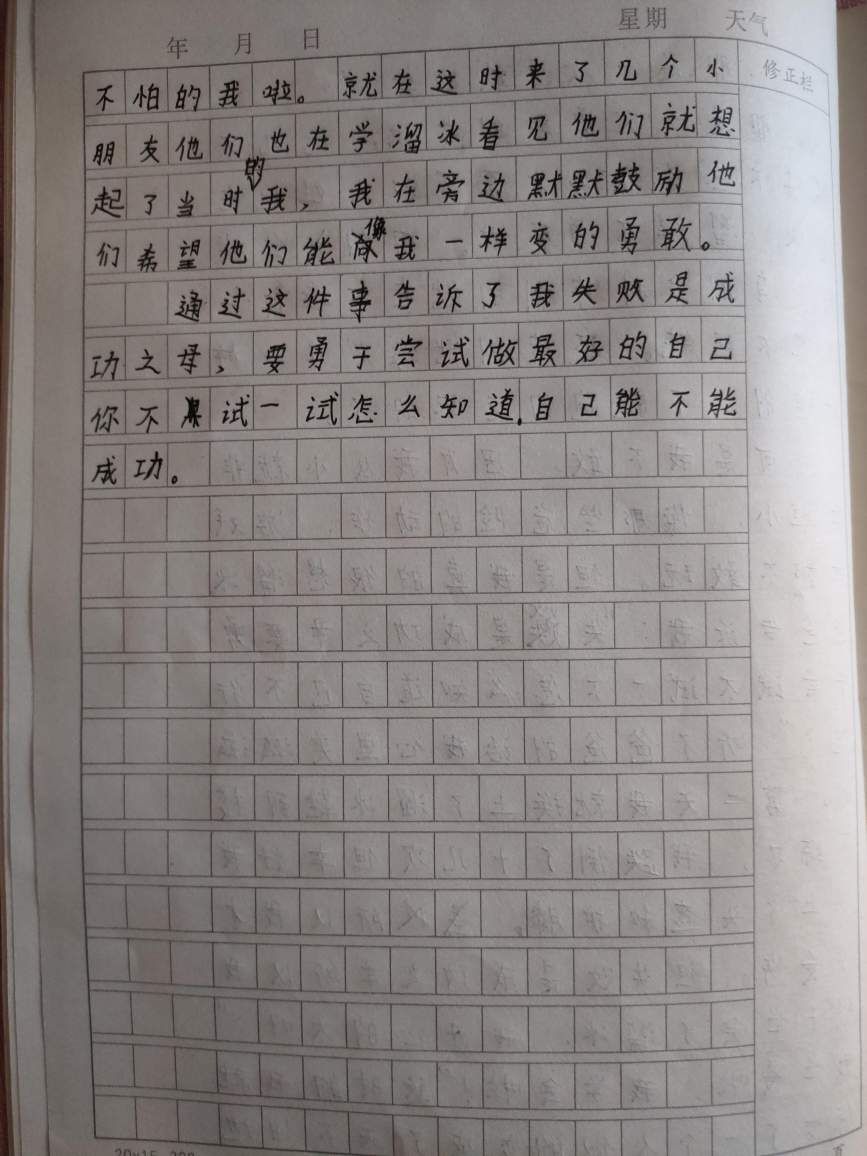 年 月 日 星期 天气
修正栏
不怕的我啦。就在这时来了几个小
朋友他们也在学溜冰看见他们就想
起了当时的我，我在旁边默默鼓励他
们希望他们能像我一样变的勇敢。
通过这件事告诉了我失败是成
功之母，要勇于尝试做最好的自己
你不试一试怎么知道自己能不能
成功。